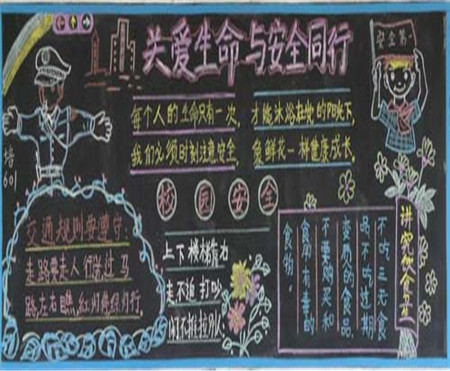 关爱生命与安全同行
安全第一
每个人的生命只有一次,
我们必须时刻注意安全,
才能沐浴在她的阳光下,
像鲜花一样健康成长。
培
601
校园安全
交通规则要遵守:
走路要走人行道,过马
路,左右瞧,红灯停绿灯行。
上下楼梯靠右
走不追打叫
闹不推拉别人
讲究饮食卫生
不吃三无食
品不吃过期
变质的食品,
不要购买和
食用有毒的
食物。